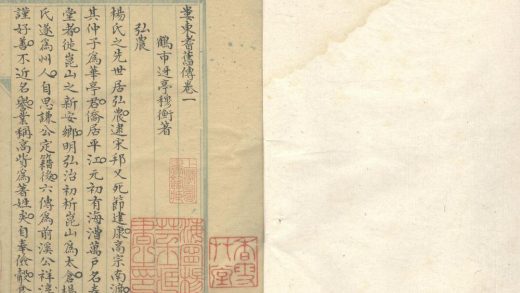 婁東耆舊傳卷一
鶴市迓亭穆衡著
弘農
楊氏之先世居弘農逮宋邦乂死節建康高宗南渡
其仲子為華亭君僑居平江元初有海漕萬戶名春
堂者徙崑山之新安鄉明弘治初析崑山為太倉楊
氏遂為州人自思謙公定籍後六傳為前溪公祥淳
謹好善不近名譽業稱高貲為著姓矣自奉儉穀
香雪艸堂